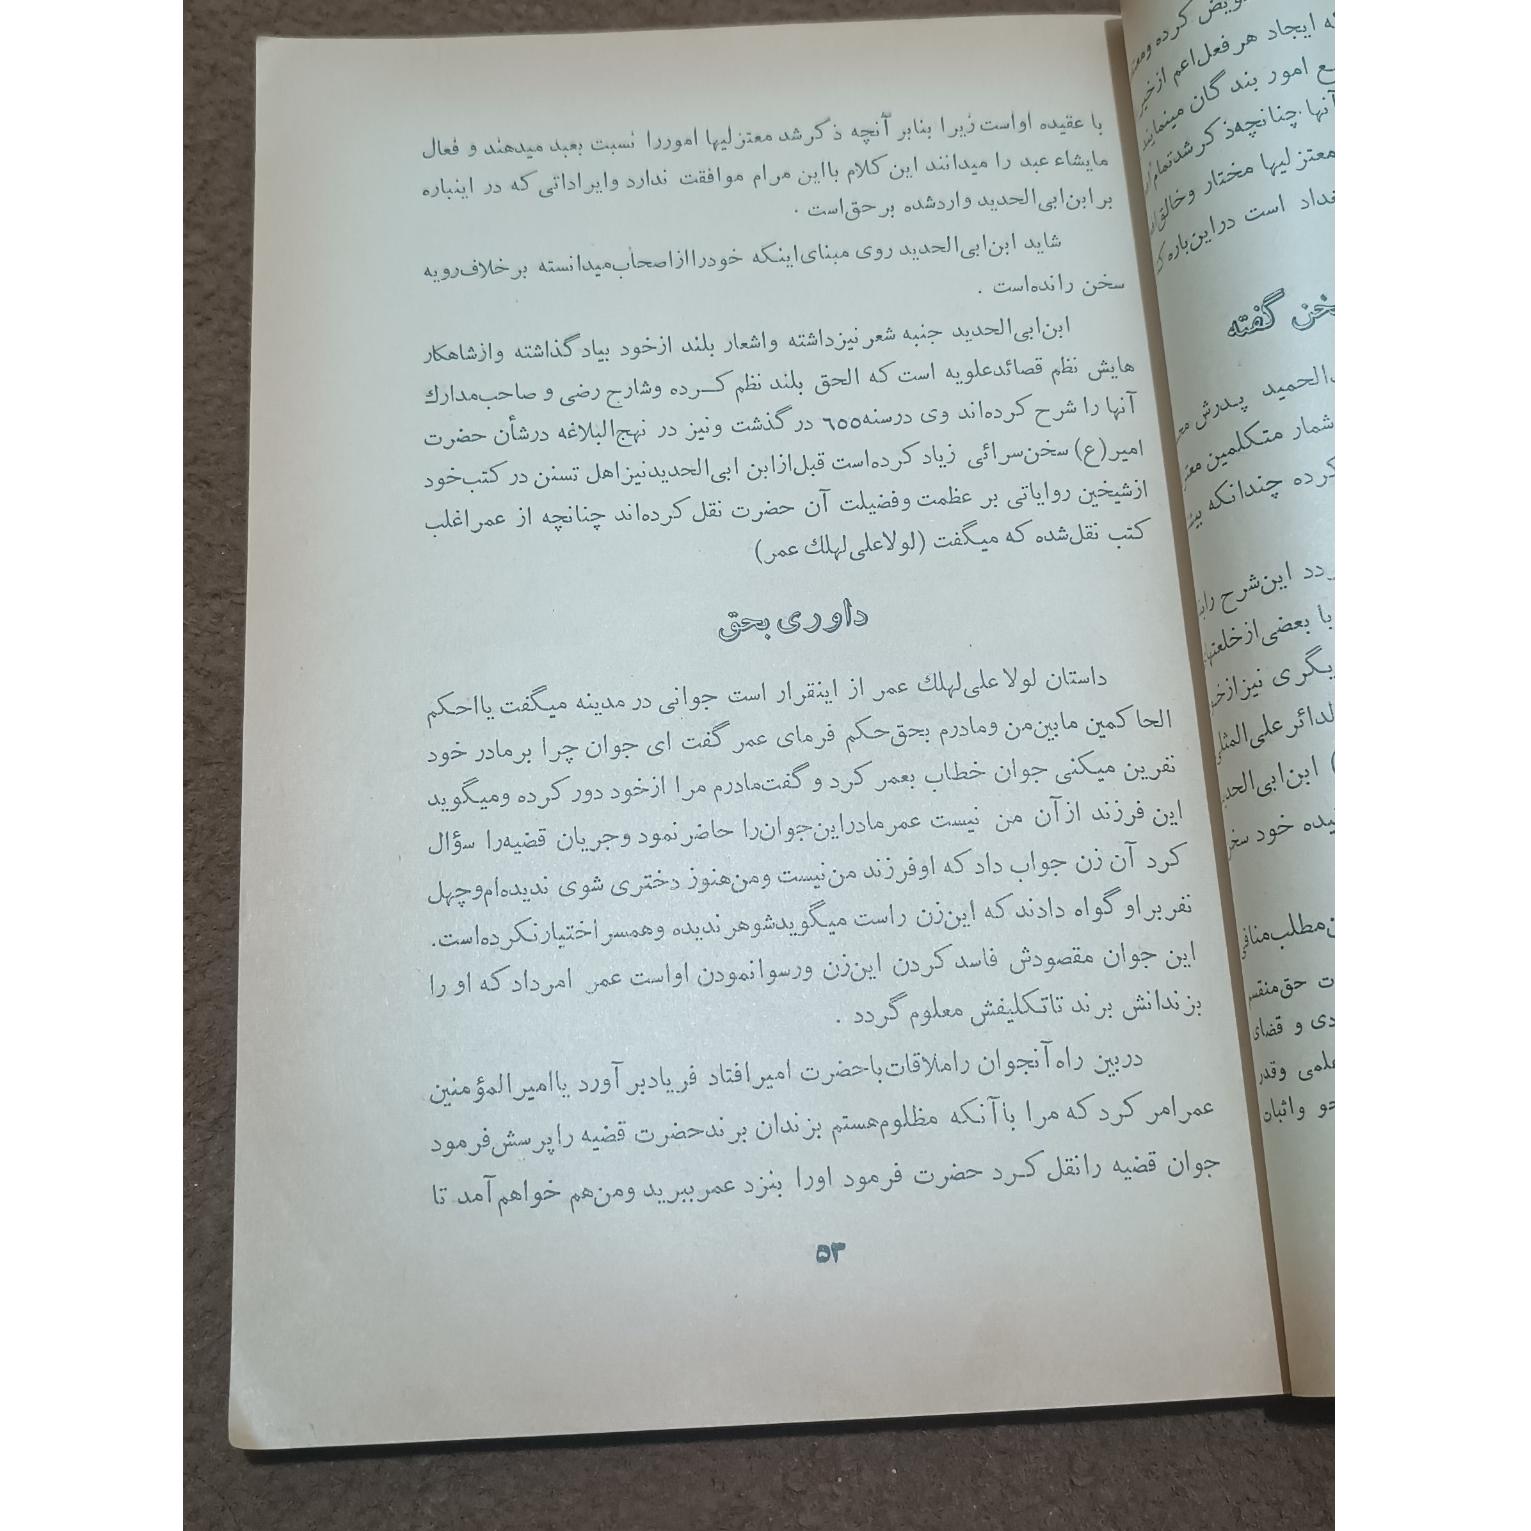 با عقیده اواست زیرا بنابر آنچه ذکرشد معتزلیها اموررا نسبت بعبد میدهند و فعال
مایشاء عبد را میدانند این کلام بااین مرام موافقت ندارد وایراداتی که در اینباره
بر ابن‌ابی‌الحدید واردشده برحق‌است .
شاید ابن‌ابی‌الحدید روی مبنای‌اینکه خودرا ازاصحاب‌میدانسته برخلاف‌رویه
سخن رانده‌است .
ابن‌ابی‌الحدید جنبه شعر نیزداشته واشعار بلند ازخود بیاد گذاشته وازشاهکار
هایش نظم قصائدعلویه است که الحق بلند نظم کـــرده وشارح رضی و صاحب‌مدارك
آنها را شرح کرده‌اند وی درسنه ٦٥٥ درگذشت ونیز در نهج‌البلاغه درشأن حضرت
امیر(ع) سخن‌سرائی زیاد کرده‌است قبل‌ازابن ابی‌الحدیدنیزاهل تسنن در کتب‌خود
ازشیخین روایاتی بر عظمت وفضیلت آن حضرت نقل کرده‌اند چنانچه از عمر اغلب
کتب نقل‌شده که میگفت (لولاعلی‌لهلك عمر)
داوری بحق
داستان لولا علی‌لهلك عمر از اینقرار است جوانی در مدینه میگفت یااحکم
الحاکمین مابین‌من ومادرم بحق‌حکم فرمای عمر گفت ای جوان چرا برمادر خود
نفرین میکنی جوان خطاب بعمر کرد و گفت‌مادرم مرا ازخود دور کرده ومیگوید
این فرزند ازآن من نیست عمرمادراین‌جوان‌را حاضرنمود وجریان قضیه‌را سؤال
کرد آن زن جواب داد که اوفرزند من‌نیست ومن‌هنوز دختری شوی ندیده‌ام‌وچهل
نفربراو گواه دادند که این‌زن راست میگویدشوهرندیده وهمسراختیارنکرده‌است.
این جوان مقصودش فاسد کردن این‌زن ورسوانمودن اواست عمر امرداد که او را
بزندانش برند تاتکلیفش معلوم گردد .
دربین راه آنجوان راملاقات‌باحضرت امیرافتاد فریادبرآورد یاامیرالمؤمنین
عمرامر کرد که مرا باآنکه مظلوم‌هستم بزندان برندحضرت قضیه راپرسش‌فرمود
جوان قضیه رانقل کـرد حضرت فرمود اورا بنزد عمرببرید ومن‌هم خواهم‌آمد تا
۵۳
ایجاد هرفعل‌اعم ازخیر
امور بندگان مینمایند
آنها چنانچه‌ذکرشدتمام
معتزلیها مختار وخالق
است دراین‌باره
گفته
پدرش
شمار متکلمین
کرده چندانکه
این‌شرح
با بعضی‌ازخلعتها
نیزازخ
الدائر علی‌المثل
ابن‌ابی‌الحد
خود
مطلب‌منافی
حق‌منقسم
و قضای
علمی وقدر